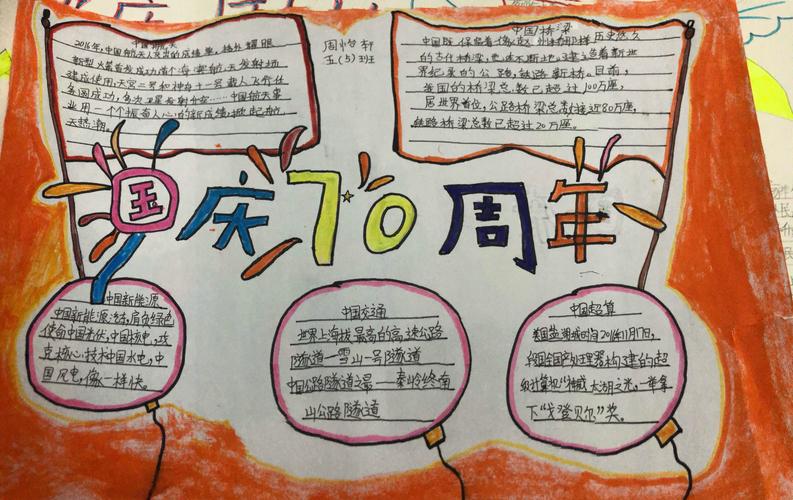 中国航天
2016年,中国航天人交出的成绩单,格外耀眼
新型火箭首发成功首个海南航天发射场
建成使用,天宫二号和神舟十一号载人飞行任
务圆成功,多次卫星发射升空……中国航天事
业用一个个振奋人心的新成绩,掀起航
天热潮。
周怡轩
五(5)班
中国桥梁
中国既保留着像赵州桥那样历史悠久
的古代桥梁,也
世界纪录的公路,铁路新桥。目前,
我国的桥梁总数已超过100万座,
居世界首位,公路桥梁总数接近80万座,
铁路桥梁总数已超过20万座。
国庆70周年
中国新能源
中国新能源活,肩负绿色
使命中国光伏,中国核电,攻
克核心技术中国水电,中
国风电,像一样快。
中国交通
世界上海拔最高的高速公路
隧道—雪山一号隧道
中国公路隧道之最——秦岭终南
山公路隧道
中国超算
美国盐湖城时间2016年11月17日,
我国国产处理器构建的超
级计算机“神威·太湖之光”一举拿
下“戈登贝尔”奖。